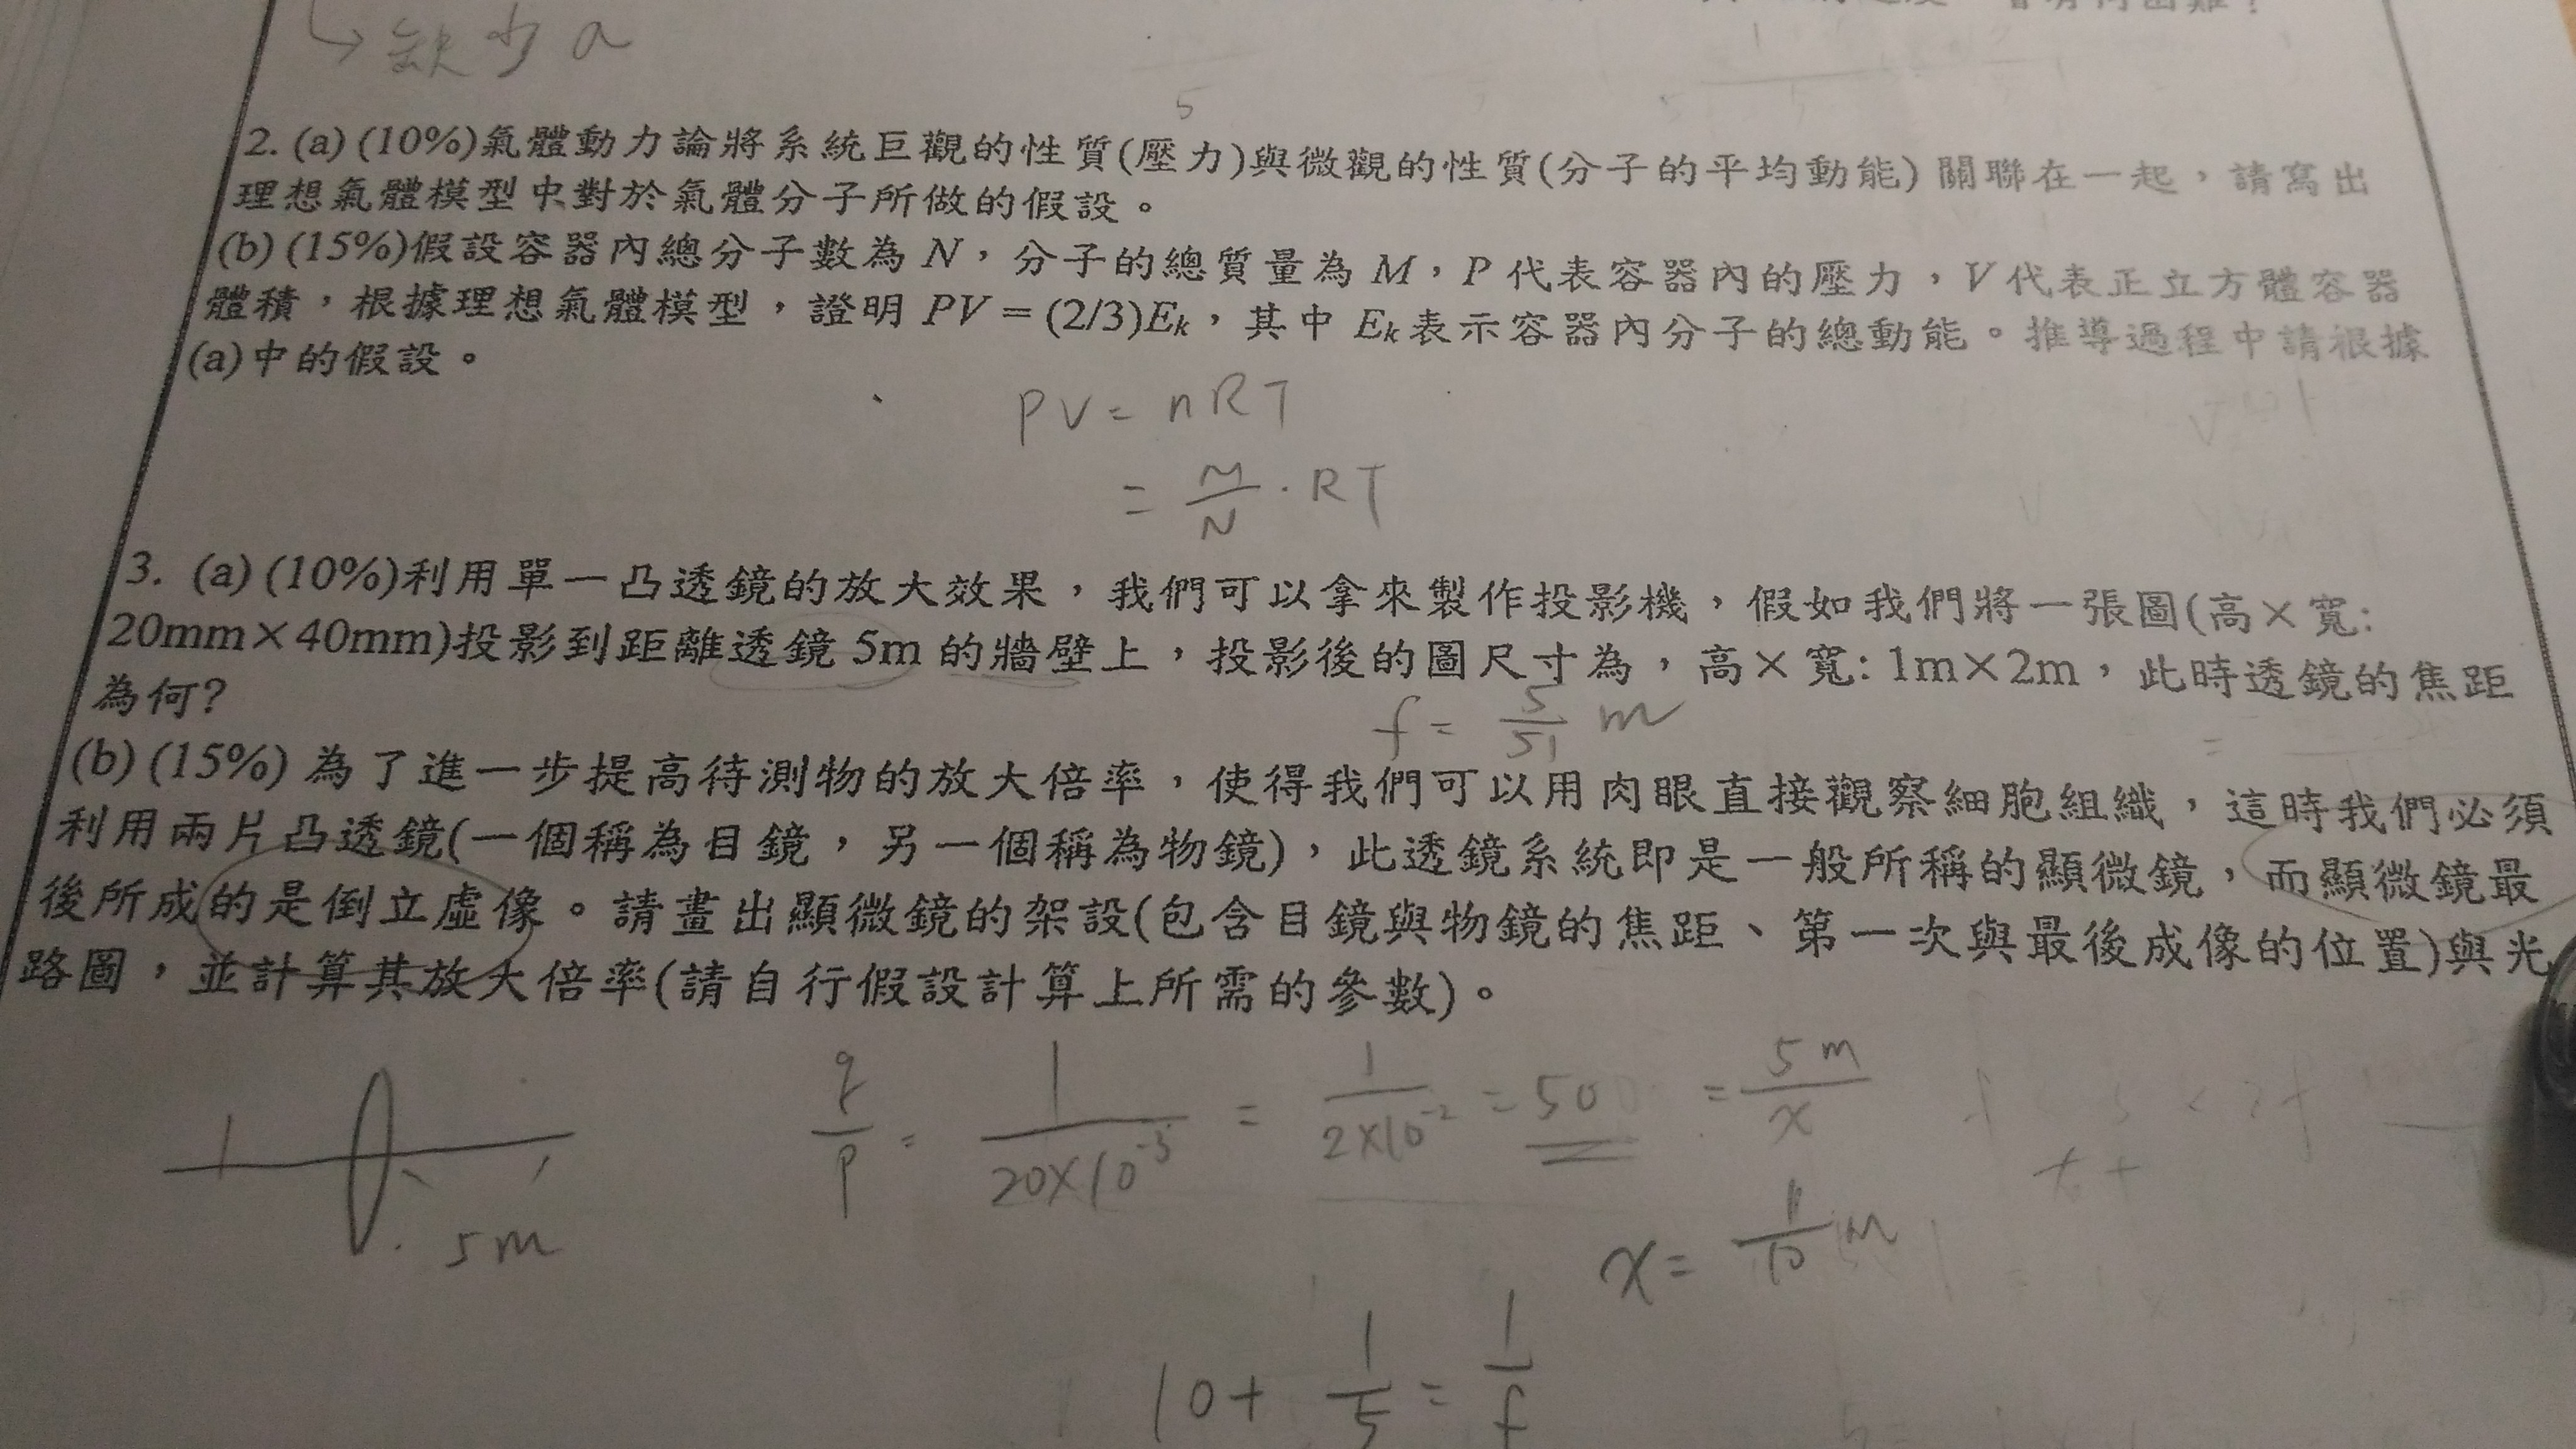 ↳ 缺少 a
2. (a) (10%)氣體動力論將系統巨觀的性質(壓力)與微觀的性質(分子的平均動能)關聯在一起，請寫出
理想氣體模型中對於氣體分子所做的假設。
(b) (15%)假設容器內總分子數為 N，分子的總質量為 M，P 代表容器內的壓力，V 代表正立方體容器
體積，根據理想氣體模型，證明 PV = (2/3)Ek，其中 Ek表示容器內分子的總動能。推導過程中請根據
(a)中的假設。
PV = nRT
= M/N · RT
3. (a) (10%)利用單一凸透鏡的放大效果，我們可以拿來製作投影機，假如我們將一張圖(高×寬:
20mm×40mm)投影到距離透鏡 5m 的牆壁上，投影後的圖尺寸為，高×寬: 1m×2m，此時透鏡的焦距
為何?
f = 5/51 m
(b) (15%) 為了進一步提高待測物的放大倍率，使得我們可以用肉眼直接觀察細胞組織，這時我們必須
利用兩片凸透鏡(一個稱為目鏡，另一個稱為物鏡)，此透鏡系統即是一般所稱的顯微鏡，而顯微鏡最
後所成的是倒立虛像。請畫出顯微鏡的架設(包含目鏡與物鏡的焦距、第一次與最後成像的位置)與光
路圖，並計算其放大倍率(請自行假設計算上所需的參數)。
q/p = 1/20×10⁻³ = 1/2×10⁻² = 50 = 5m/x
5m
x = 1/10 m
10 + 1/5 = 1/f